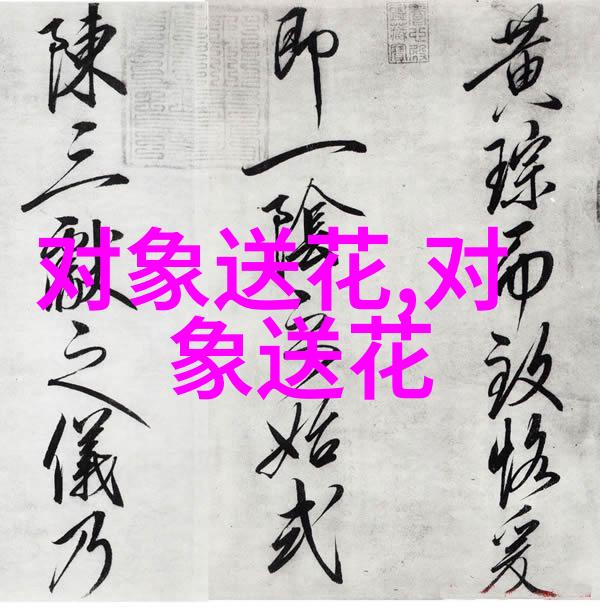 黄琮而致恪爰
即一陰始式
陳三獻之儀乃
对象送花,对
象送花